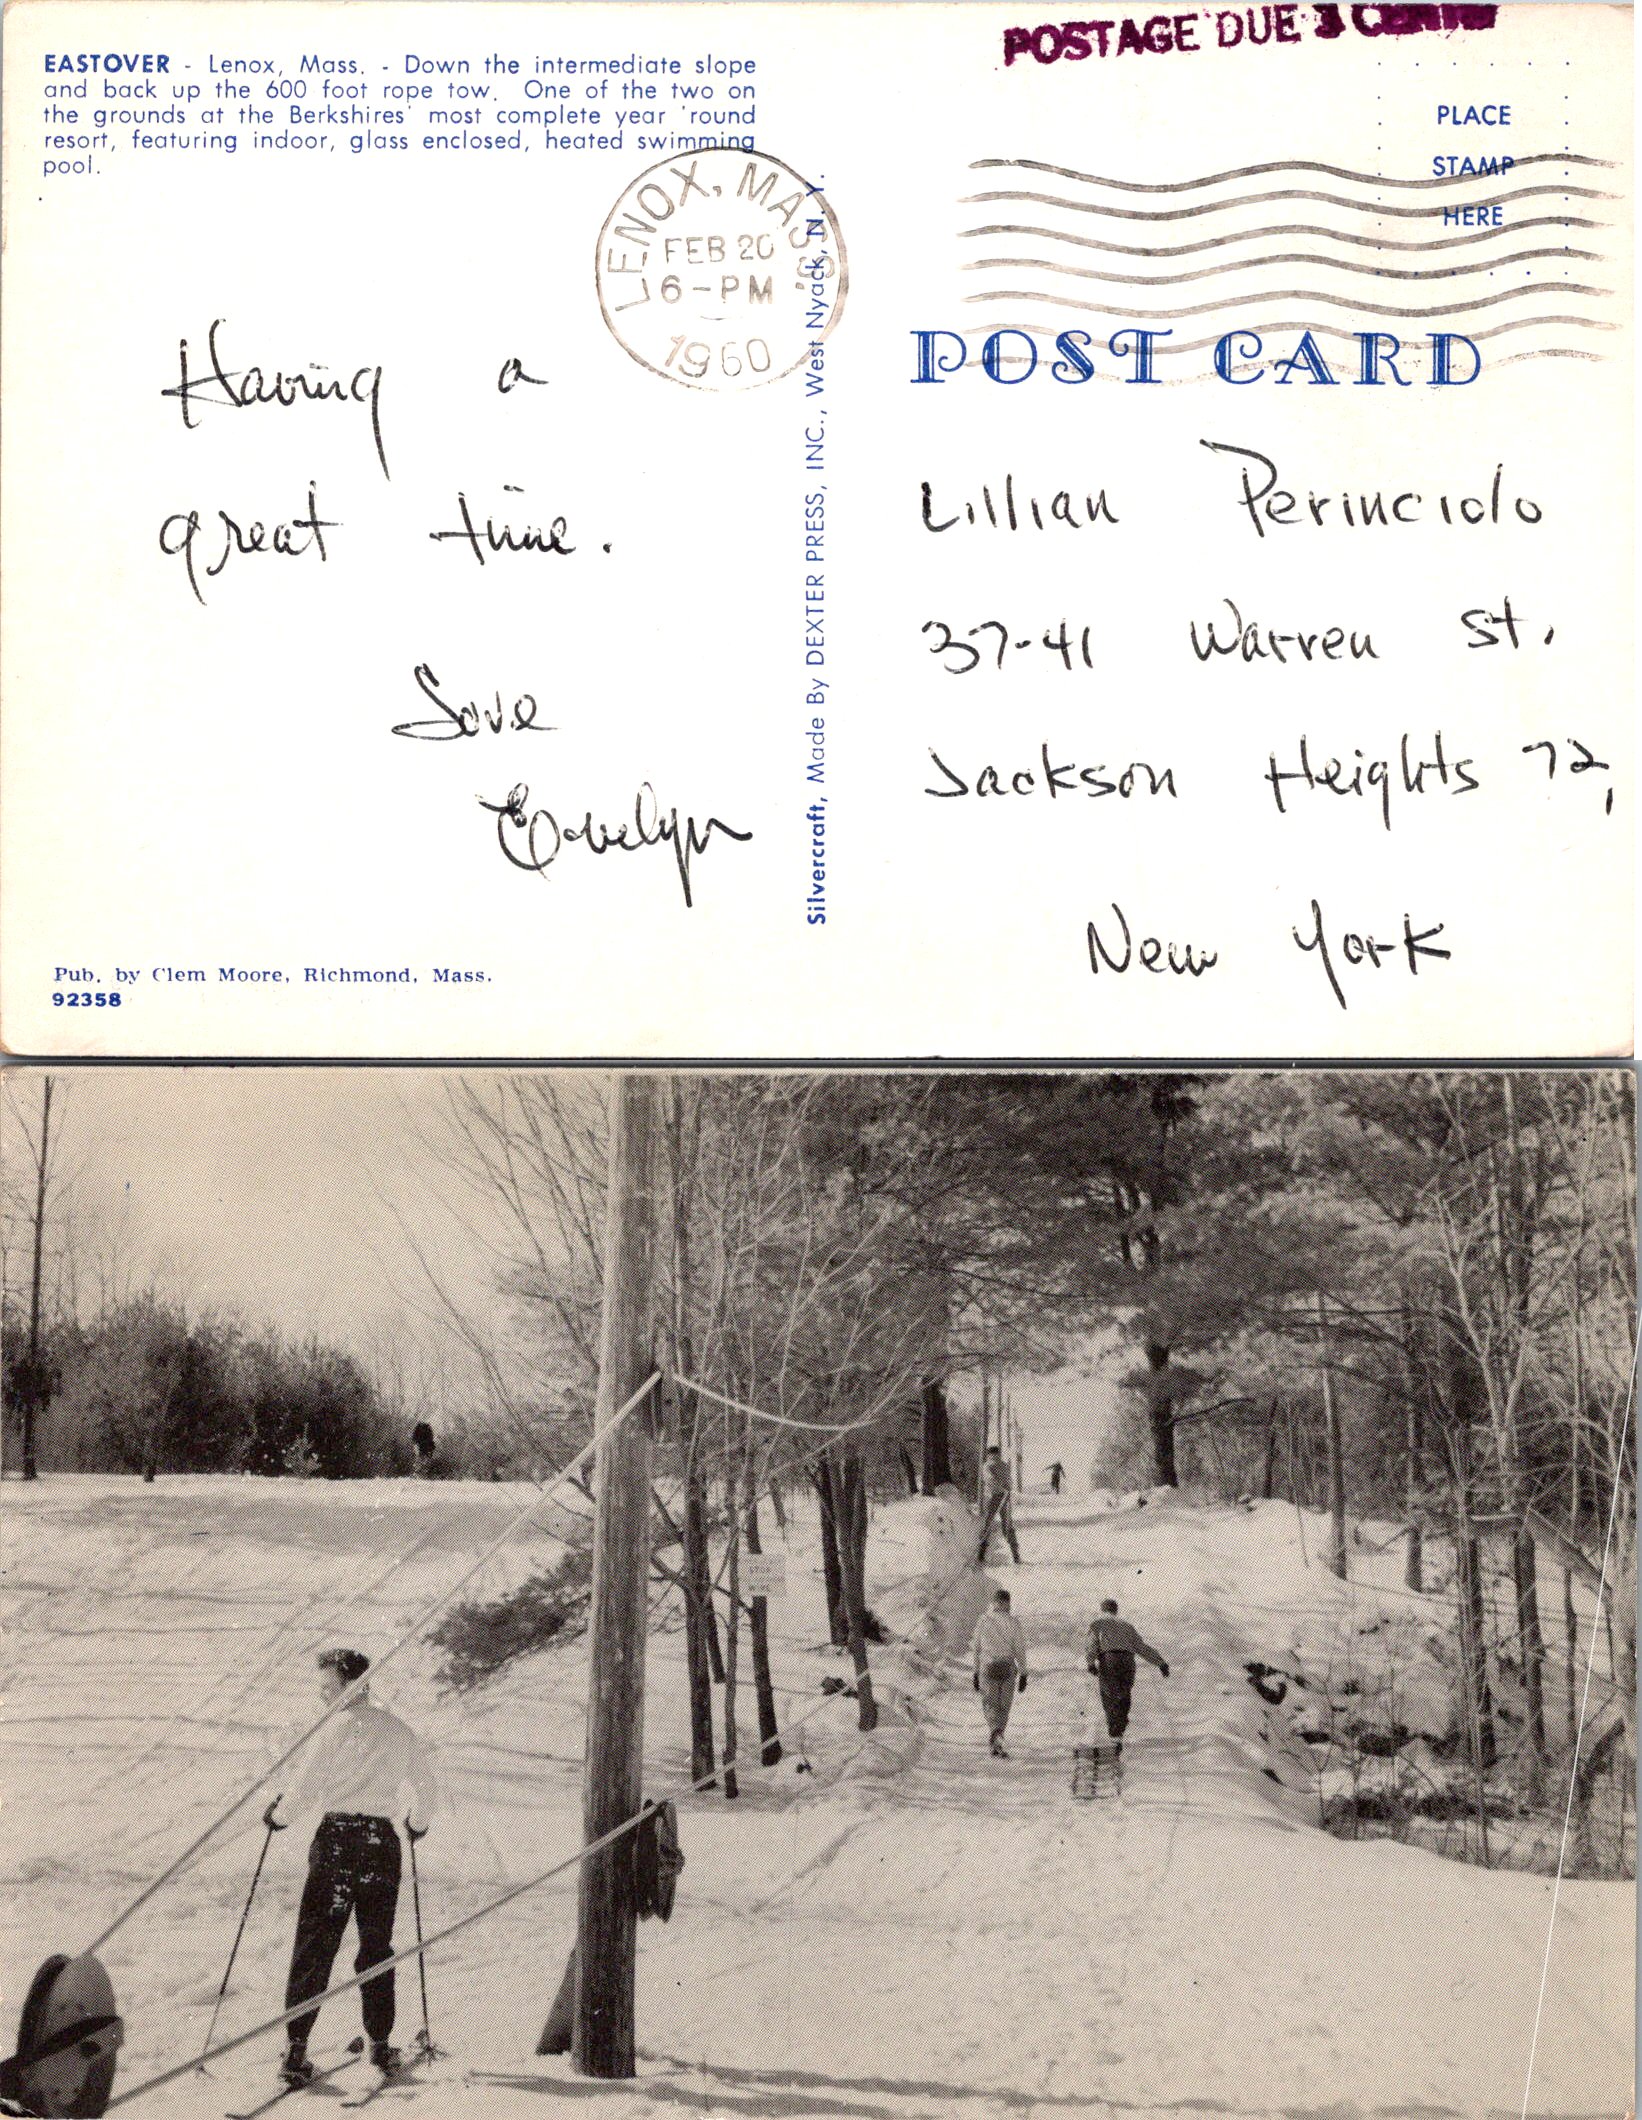 POSTAGE DUE 3 CENTS
EASTOVER - Lenox, Mass. - Down the intermediate slope
and back up the 600 foot rope tow. One of the two on
the grounds at the Berkshires' most complete year 'round
resort, featuring indoor, glass enclosed, heated swimming
pool.
PLACE
STAMP
HERE
LENOX, MASS.
FEB 20
6-PM
1960
POST CARD
Having a
great time.
Love
Evelyn
Silvercraft, Made By DEXTER PRESS, INC., West Nyack, N. Y.
Lillian Perinciolo
37-41 Warren St.
Jackson Heights 72,
New York
Pub. by Clem Moore, Richmond, Mass.
92358
STOP